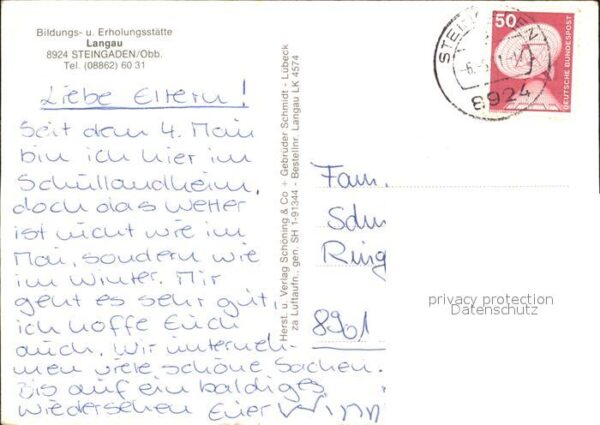 Bildungs- u. Erholungsstätte
Langau
8924 STEINGADEN/Obb.
Tel. (08862) 60 31
Liebe Eltern!
Seit dem 4. Mai
bin ich hier im
Schullandheim,
doch das Wetter
ist nicht wie im
Mai, sondern wie
im Winter. Mir
geht es sehr gut,
ich hoffe Euch
auch. Wir unterneh-
men viele schöne Sachen.
Bis auf ein baldiges
Wiedersehen Euer
Herst. u. Verlag Schöning & Co + Gebrüder Schmidt - Lübeck
za Luftaufn., gen. SH 1-91344 - Bestellnr. Langau LK 4574
50
DEUTSCHE BUNDESPOST
8924
Fam.
Ring
8901
privacy protection
Datenschutz